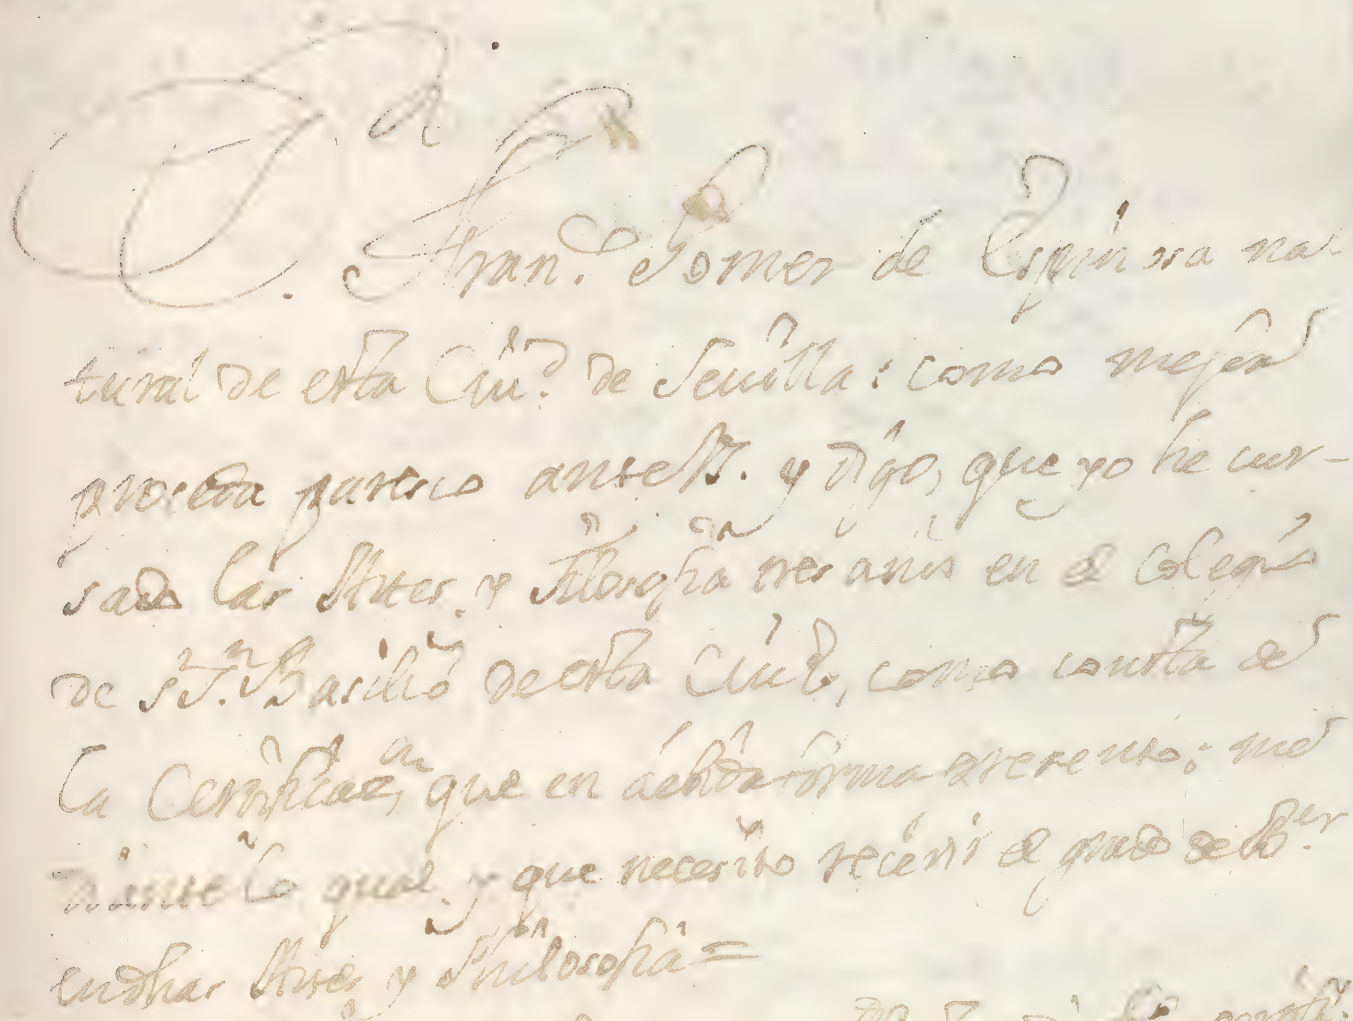 D. Fran.co Gomez de Espinosa na-
tural de esta Ciu.d de Sevilla: como mejor
proseda paresco ante V. y digo, que yo he cur-
sado las Artes, y Filosofia tres años en el Colegio
de S.r S.n Basilio de esta Ciud, como consta de
la Certificaz.on que en debida forma presento; me
diante lo qual y que necesito recevir el grado de B.er
en dhas Artes y Philosophia =